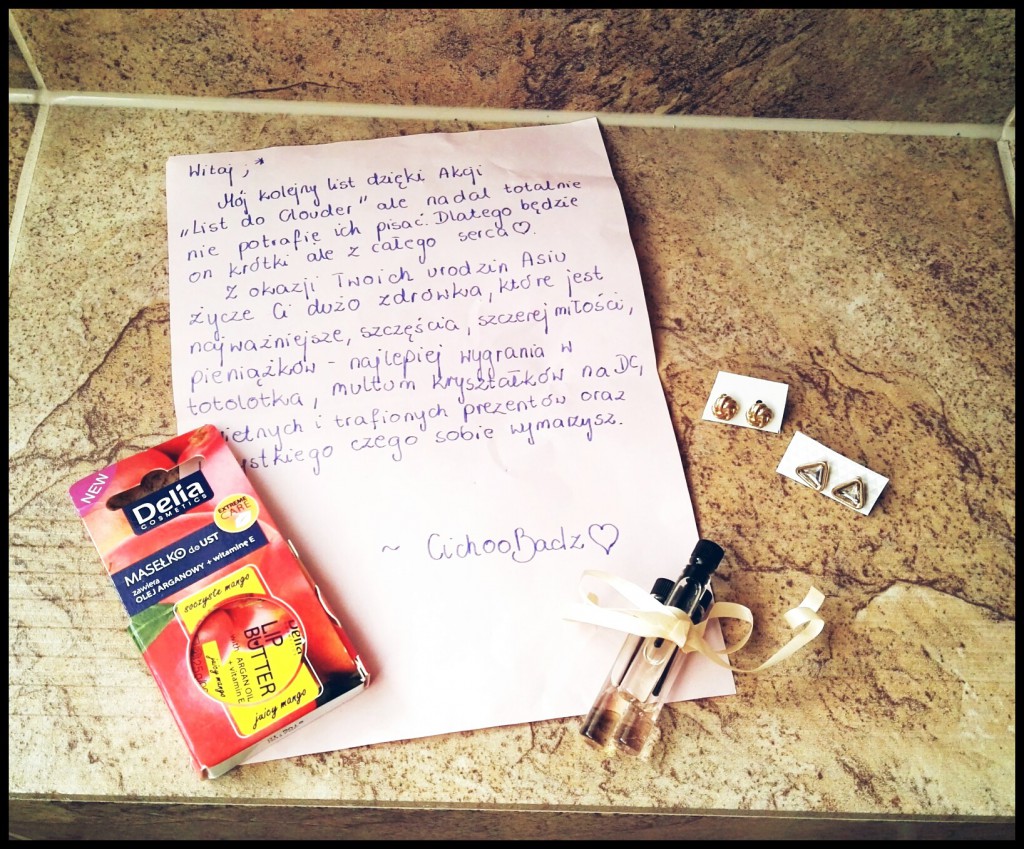 Witaj ;*
Mój kolejny list dzięki Akcji
„List do Clouder" ale nadal totalnie
nie potrafię ich pisać. Dlatego będzie
on krótki ale z całego serca♡.
Z okazji Twoich urodzin Asiu
życze Ci dużo zdrówka, które jest
najważniejsze, szczęścia, szczerej miłości,
pieniążków - najlepiej wygrania w
totolotka, multum kryształków na DC,
i trafionych prezentów oraz
czego sobie wymarzysz.
~ CichooBadz♡
NEW
Delia
COSMETICS
EXTREME
CARE
MASEŁKO do UST
zawiera
OLEJ ARGANOWY + witaminę E
soczyste mango
Delia
LIP
BUTTER
with ARGAN OIL
+ vitamin E
juicy mango
juicy mango